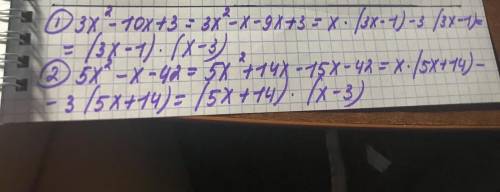 ① 3x²-10x+3=3x²-x-9x+3=x·(3x-1)-3(3x-1)=
=(3x-1)·(x-3)
② 5x²-x-42=5x²+14x-15x-42=x·(5x+14)-
-3(5x+14)=(5x+14)·(x-3)